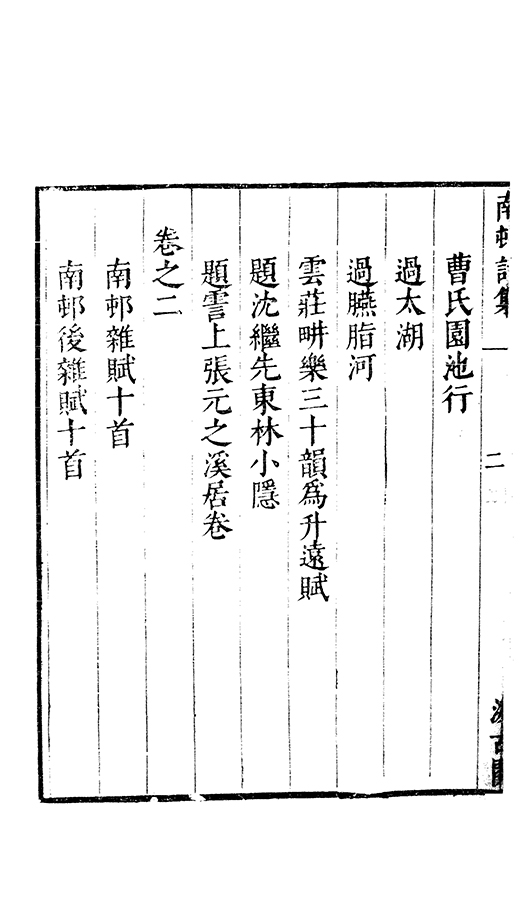 南邨詩集 一 二 汲古閣
曹氏園池行
過太湖
過臙脂河
雲莊畊樂三十韻爲升遠賦
題沈繼先東林小隱
題霅上張元之溪居卷
卷之二
南邨雜賦十首
南邨後雜賦十首